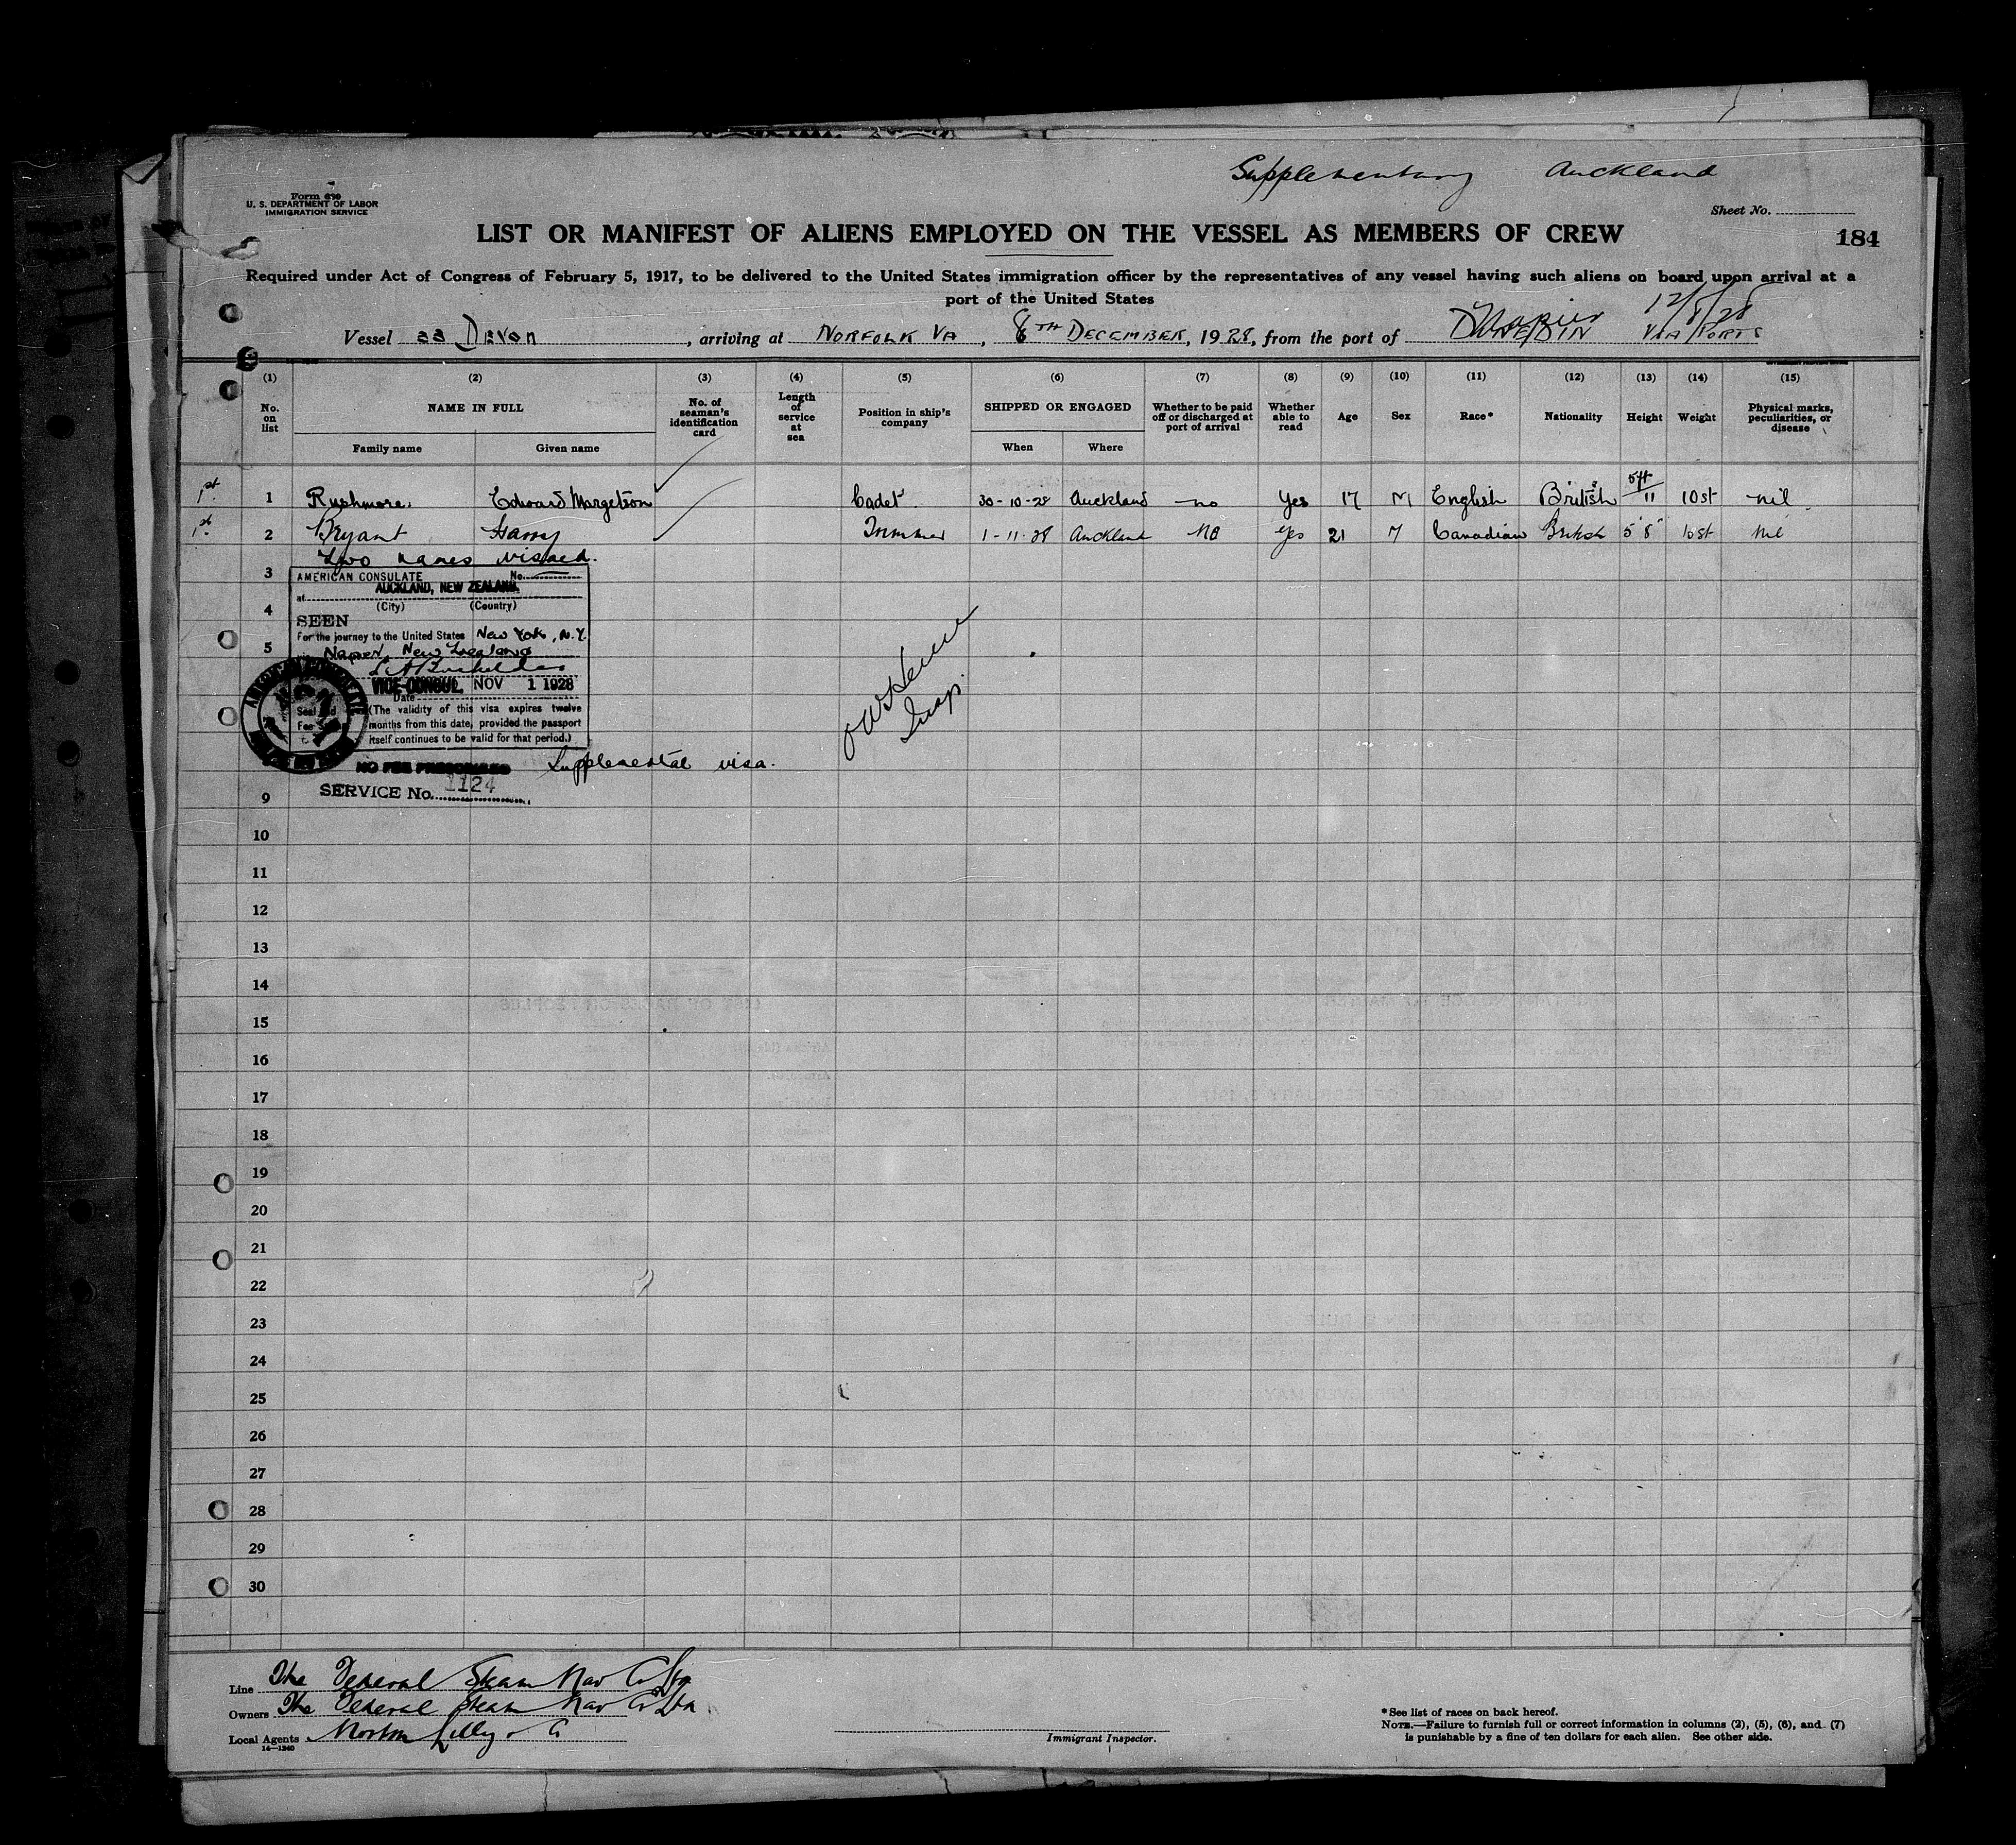 Supplementary Auckland
Form 680
U. S. DEPARTMENT OF LABOR
IMMIGRATION SERVICE
Sheet No.
LIST OR MANIFEST OF ALIENS EMPLOYED ON THE VESSEL AS MEMBERS OF CREW
184
Required under Act of Congress of February 5, 1917, to be delivered to the United States immigration officer by the representatives of any vessel having such aliens on board upon arrival at a
port of the United States
12/8/28
Vessel SS Devon, arriving at NORFOLK VA, 8TH DECEMBER, 1928, from the port of DUNEDIN Napier VIA PORTS
(1) (2) (3) (4) (5) (6) (7) (8) (9) (10) (11) (12) (13) (14) (15)
No. on list NAME IN FULL No. of seaman's identification card Length of service at sea Position in ship's company SHIPPED OR ENGAGED Whether to be paid off or discharged at port of arrival Whether able to read Age Sex Race* Nationality Height Weight Physical marks, peculiarities, or disease
Family name Given name When Where
1st 1 Rushmore. Edward Margetson Cadet. 30-10-28 Auckland no Yes 17 M English British 5ft/11 10st nil.
1st 2 Bryant Harry Trimmer 1-11-28 Auckland No Yes 21 M Canadian British 5'8" 10st Nil
Two names visaed.
3
AMERICAN CONSULATE No.
at AUCKLAND, NEW ZEALAND.
4
(City) (Country)
SEEN
For the journey to the United States New York, N.Y.
5
Napier, New Zealand
VICE-CONSUL. NOV 1 1928
Date
Seal and
Fee Stamp
(The validity of this visa expires twelve
months from this date, provided the passport
itself continues to be valid for that period.)
Insp.
NO FEE PRESCRIBED Supplemental visa.
SERVICE No. 1124
9
10
11
12
13
14
15
16
17
18
19
20
21
22
23
24
25
26
27
28
29
30
Line The Federal Steam Nav Co Ltd
Owners The Federal Steam Nav Co Ltd
Local Agents Norton Lilly & Co
14—1240
Immigrant Inspector.
*See list of races on back hereof.
NOTE.—Failure to furnish full or correct information in columns (2), (5), (6), and (7)
is punishable by a fine of ten dollars for each alien. See other side.